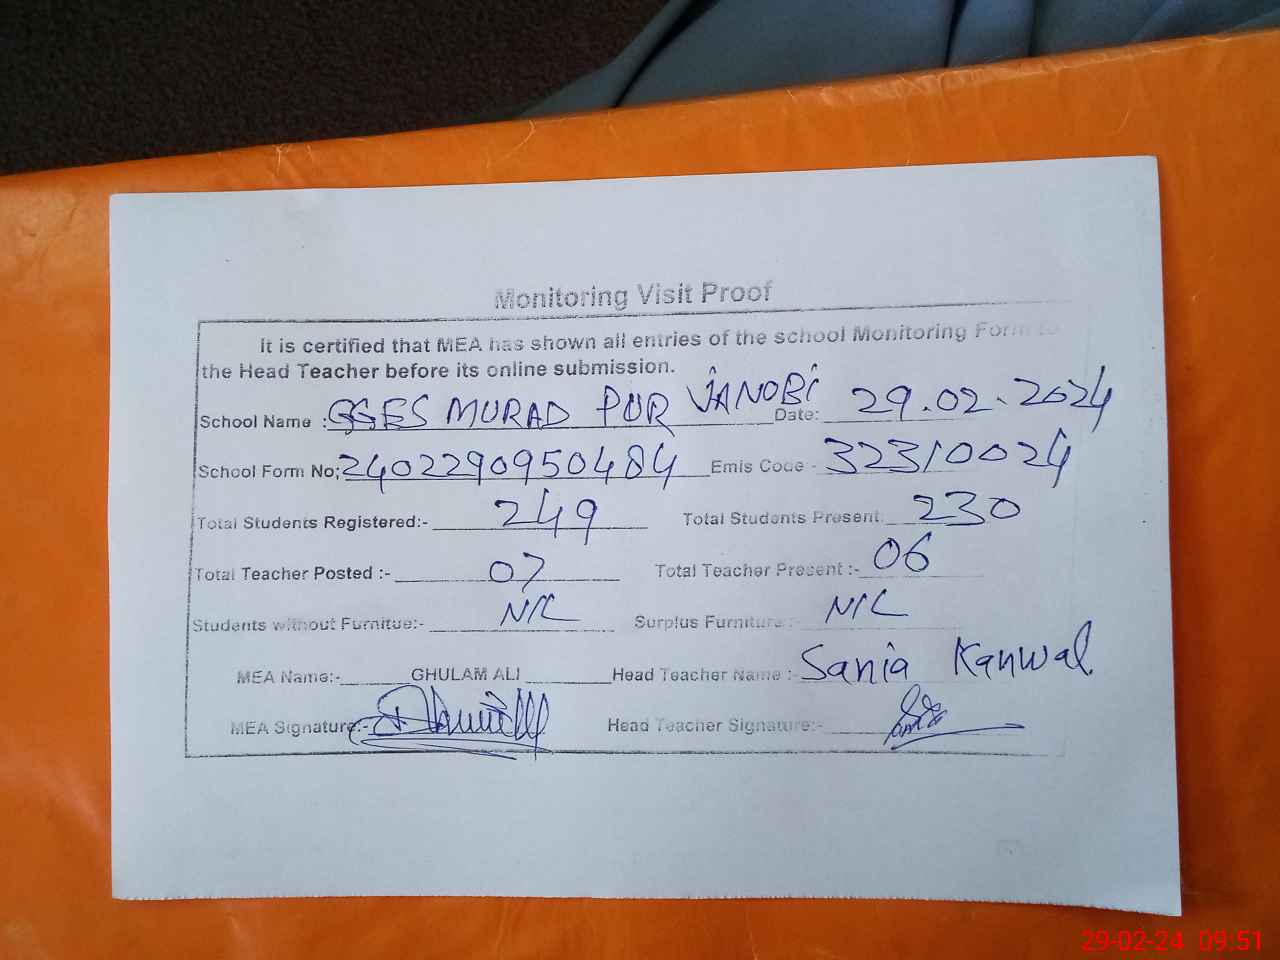 Monitoring Visit Proof
It is certified that MEA has shown all entries of the school Monitoring Form to
the Head Teacher before its online submission.
School Name :GGES MURAD PUR JANOBI Date: 29.02.2024
School Form No: 2402290950484 Emis Code - 32310024
Total Students Registered:- 249 Total Students Present: 230
Total Teacher Posted :- 07 Total Teacher Present :- 06
Students without Furnitue:- NIL Surplus Furniture :- NIL
MEA Name:- GHULAM ALI Head Teacher Name :- Sania Kanwal
MEA Signature:- Head Teacher Signature:-
29-02-24 09:51